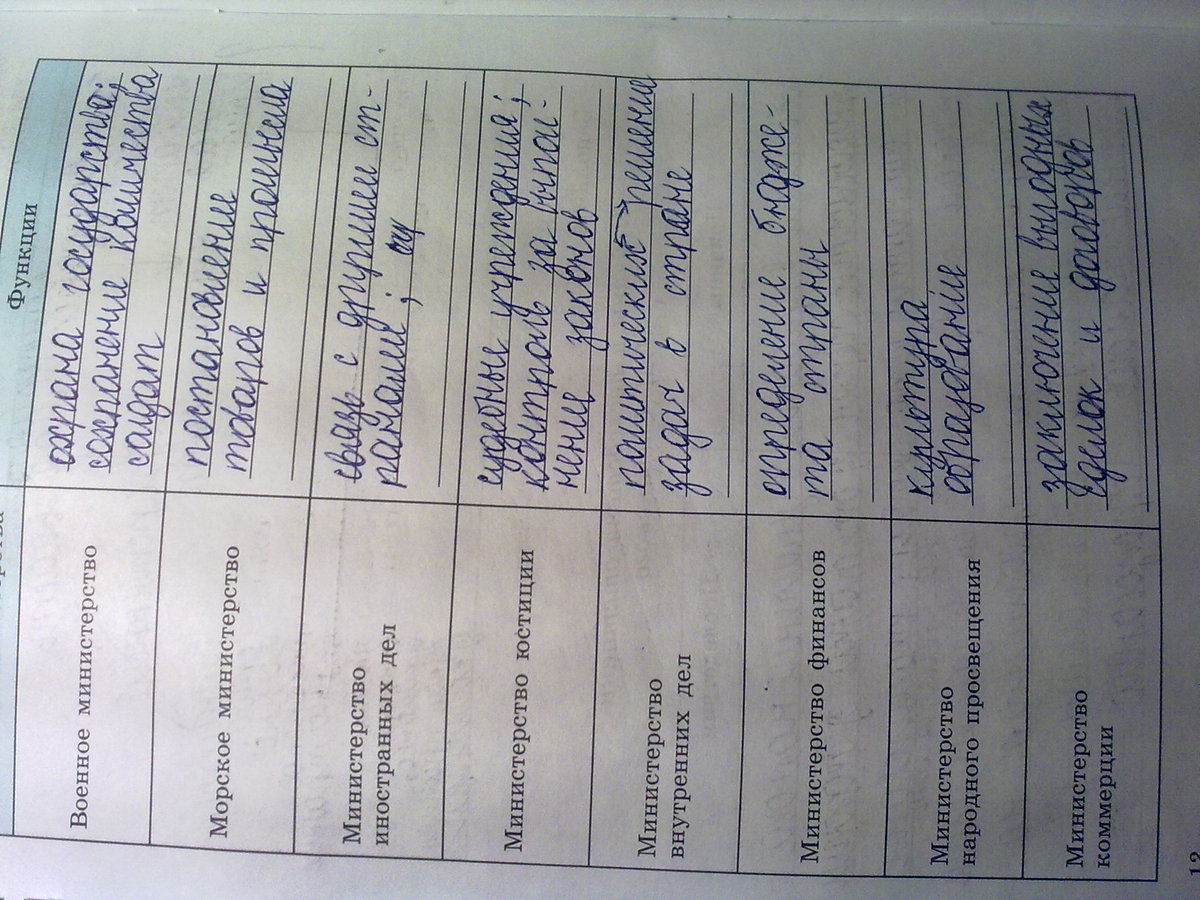 Функции
Военное министерство
охрана государства;
сохранение количества
солдат
Морское министерство
поставление
товаров и
Министерство
иностранных дел
связь с другими ст-
ранами;
Министерство юстиции
судебные учреждения;
контроль за выпол-
нение законов
Министерство
внутренних дел
политических решение
задач в стране
Министерство финансов
определение бюдже-
та страны
Министерство
народного просвещения
культура
образование
Министерство
коммерции
заключение выгодных
сделок и договоров